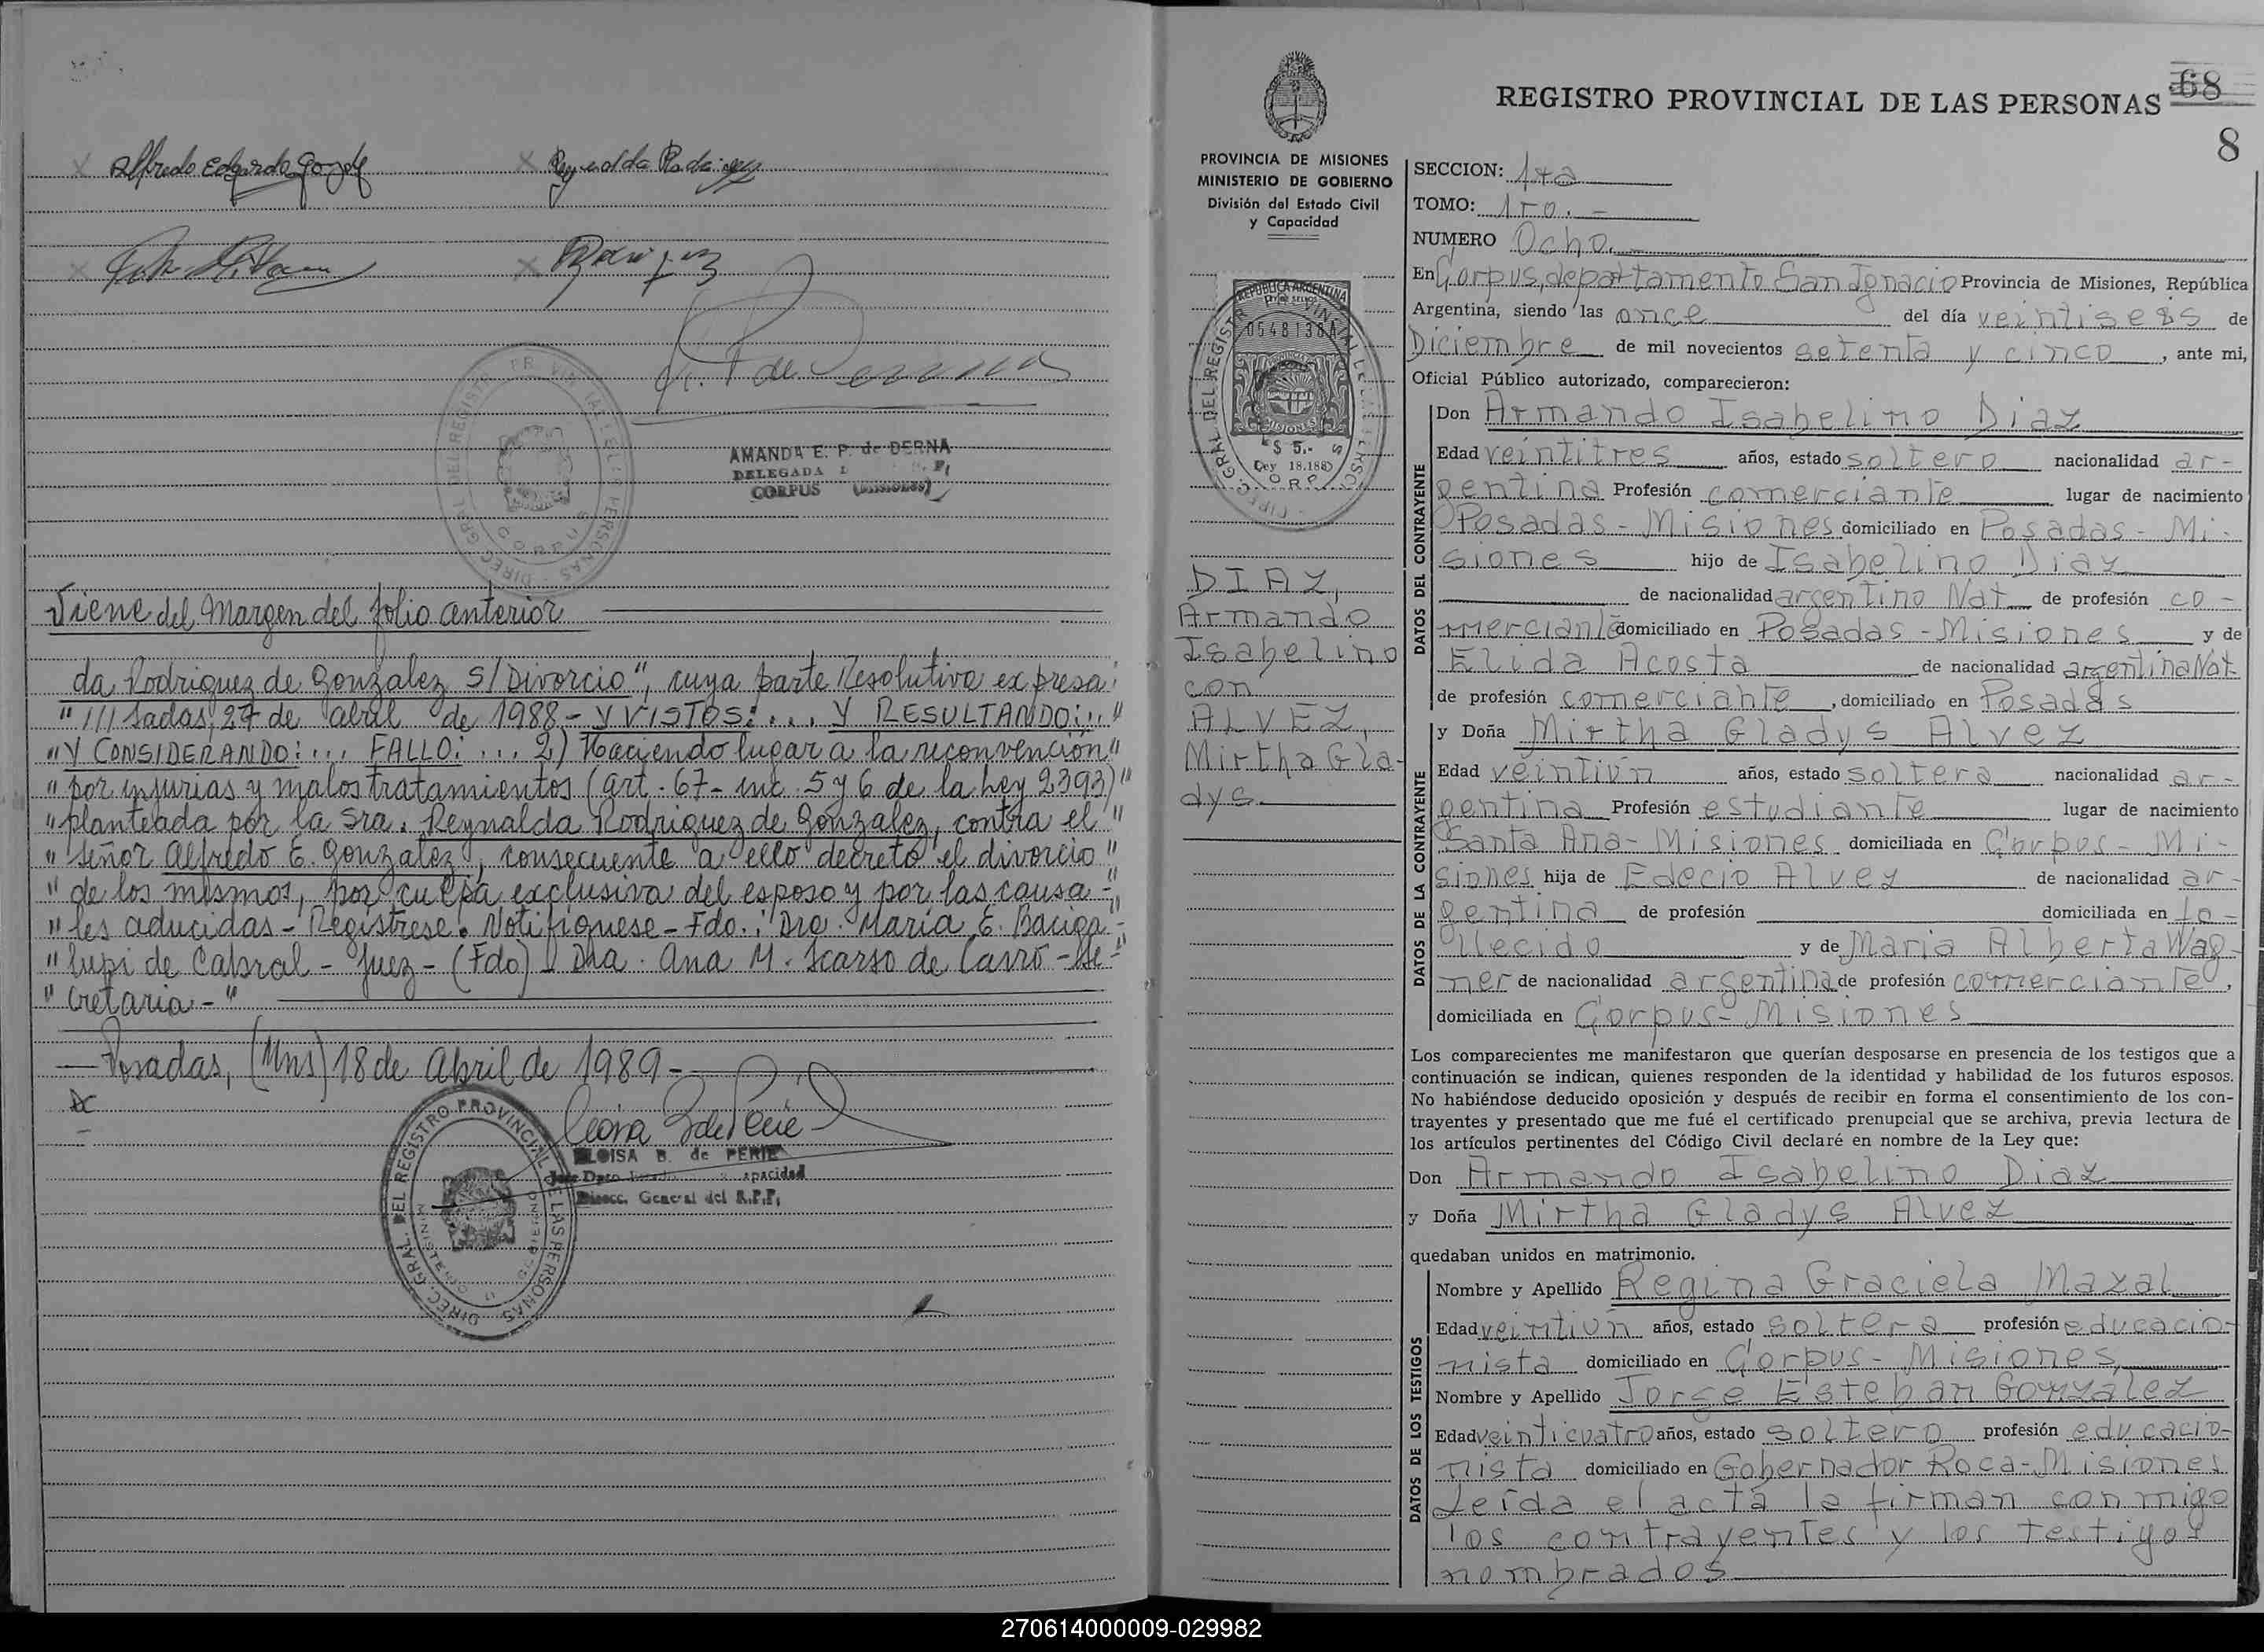 Alfredo Edgardo Reynalda Rodriguez
Rodriguez
P. de Derna
AMANDA E. P. de DERNA
DELEGADA
CORPUS (MISIONES)
Viene del Margen del folio anterior
da Rodriguez de Gonzalez S/Divorcio", cuya parte Resolutiva expresa:
"///sadas, 27 de abril de 1988 - Y VISTOS: ... Y RESULTANDO: .. "
"Y CONSIDERANDO: ... FALLO: ... 2) Haciendo lugar a la reconvención"
"por injurias y malos tratamientos (art. 67 - inc. 5 y 6 de la Ley 2393)"
"planteada por la Sra. Reynalda Rodriguez de Gonzalez, contra el"
"Señor Alfredo E. Gonzalez, consecuente a ello decreto el divorcio"
"de los mismos, por culpa exclusiva del esposo y por las causa-"
"les aducidas - Registrese. Notifiquese - Fdo.: Dra. María E. Baciga-"
"lupi de Cabral - Juez - (Fdo) Dra. Ana M. Scarso de Cavró - Se-"
"cretaria - "
— Posadas, (Mns) 18 de Abril de 1989 -
ELOISA B. de PERIE
Jefe Dpto. Capacidad
Direcc. General del R.P.P.
DIREC. GRAL. DEL REGISTRO PROVINCIAL DE LAS PERSONAS
REGISTRO PROVINCIAL DE LAS PERSONAS 68
8
PROVINCIA DE MISIONES
MINISTERIO DE GOBIERNO
División del Estado Civil
y Capacidad
REPUBLICA ARGENTINA
0548138A
$ 5.-
Ley 18.188
DIAZ,
Armando
Isabelino
con
ALVEZ,
Mirtha Gla-
dys.
SECCION: 1ra
TOMO: 1ro. -
NUMERO Ocho.
En Corpus, departamento San Ignacio Provincia de Misiones, República
Argentina, siendo las once del día veintiseis de
Diciembre de mil novecientos setenta y cinco, ante mi,
Oficial Público autorizado, comparecieron:
DATOS DEL CONTRAYENTE
Don Armando Isabelino Diaz
Edad veintitres años, estado soltero nacionalidad ar-
gentina Profesión comerciante lugar de nacimiento
Posadas - Misiones domiciliado en Posadas - Mi-
siones hijo de Isabelino Diaz
de nacionalidad argentino Nat de profesión co-
merciante domiciliado en Posadas - Misiones y de
Elida Acosta de nacionalidad argentina Nat
de profesión comerciante, domiciliado en Posadas
DATOS DE LA CONTRAYENTE
y Doña Mirtha Gladys Alvez
Edad veintiún años, estado soltera nacionalidad ar-
gentina Profesión estudiante lugar de nacimiento
Santa Ana - Misiones domiciliado en Corpus - Mi-
siones hija de Edecio Alvez de nacionalidad ar-
gentina de profesión domiciliada en fa-
llecido y de Maria Alberta Wag-
ner de nacionalidad argentina de profesión comerciante,
domiciliada en Corpus - Misiones
Los comparecientes me manifestaron que querían desposarse en presencia de los testigos que a
continuación se indican, quienes responden de la identidad y habilidad de los futuros esposos.
No habiéndose deducido oposición y después de recibir en forma el consentimiento de los con-
trayentes y presentado que me fué el certificado prenupcial que se archiva, previa lectura de
los artículos pertinentes del Código Civil declaré en nombre de la Ley que:
Don Armando Isabelino Diaz
y Doña Mirtha Gladys Alvez
quedaban unidos en matrimonio.
DATOS DE LOS TESTIGOS
Nombre y Apellido Regina Graciela Mazal
Edad veintiún años, estado soltera profesión educacio-
nista domiciliado en Corpus - Misiones,
Nombre y Apellido Jorge Esteban González
Edad veinticuatro años, estado soltero profesión educacio-
nista domiciliado en Gobernador Roca - Misiones
Leída el acta la firman conmigo
los contrayentes y los testigos
nombrados
270614000009-029982